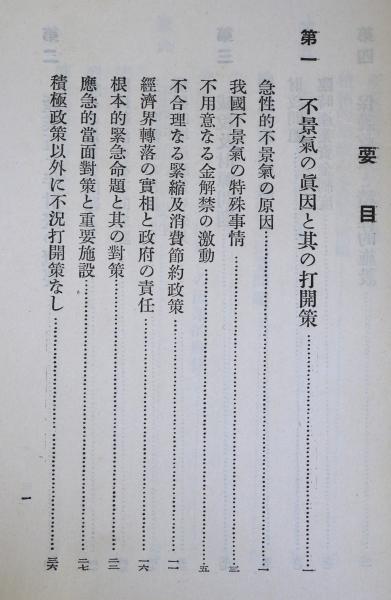 要目
第一 不景氣の眞因と其の打開策…………一
急性的不景氣の原因…………一
我國不景氣の特殊事情…………三
不用意なる金解禁の激動…………五
不合理なる緊縮及消費節約政策…………一一
經濟界轉落の實相と政府の責任…………一六
根本的緊急命題と其の對策…………二三
應急的當面對策と重要施設…………二七
積極政策以外に不況打開策なし…………三六
一